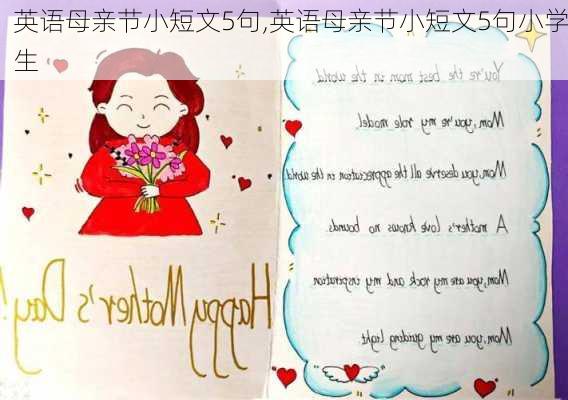 英语母亲节小短文5句,英语母亲节小短文5句小学
生
You're the best mom in the world
Mom, you're my role model.
Mom, you deserve all the appreciation in the world
A mother's love knows no bounds
Mom, you are my rock and my inspiration
Mom, you are my guiding light
Happy Mother's Day!